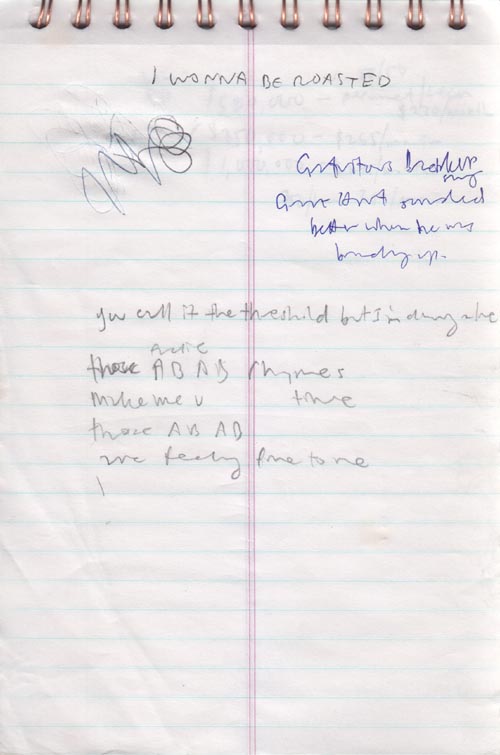 I WONNA BE ROASTED
Gratuitous Break up
song
Grant Hart sounded
better when he was
breaking up.
you call it the threshold but I'm
Arctic
those ABAB rhymes
make me time
those AB AB
are feeling fine to me
I